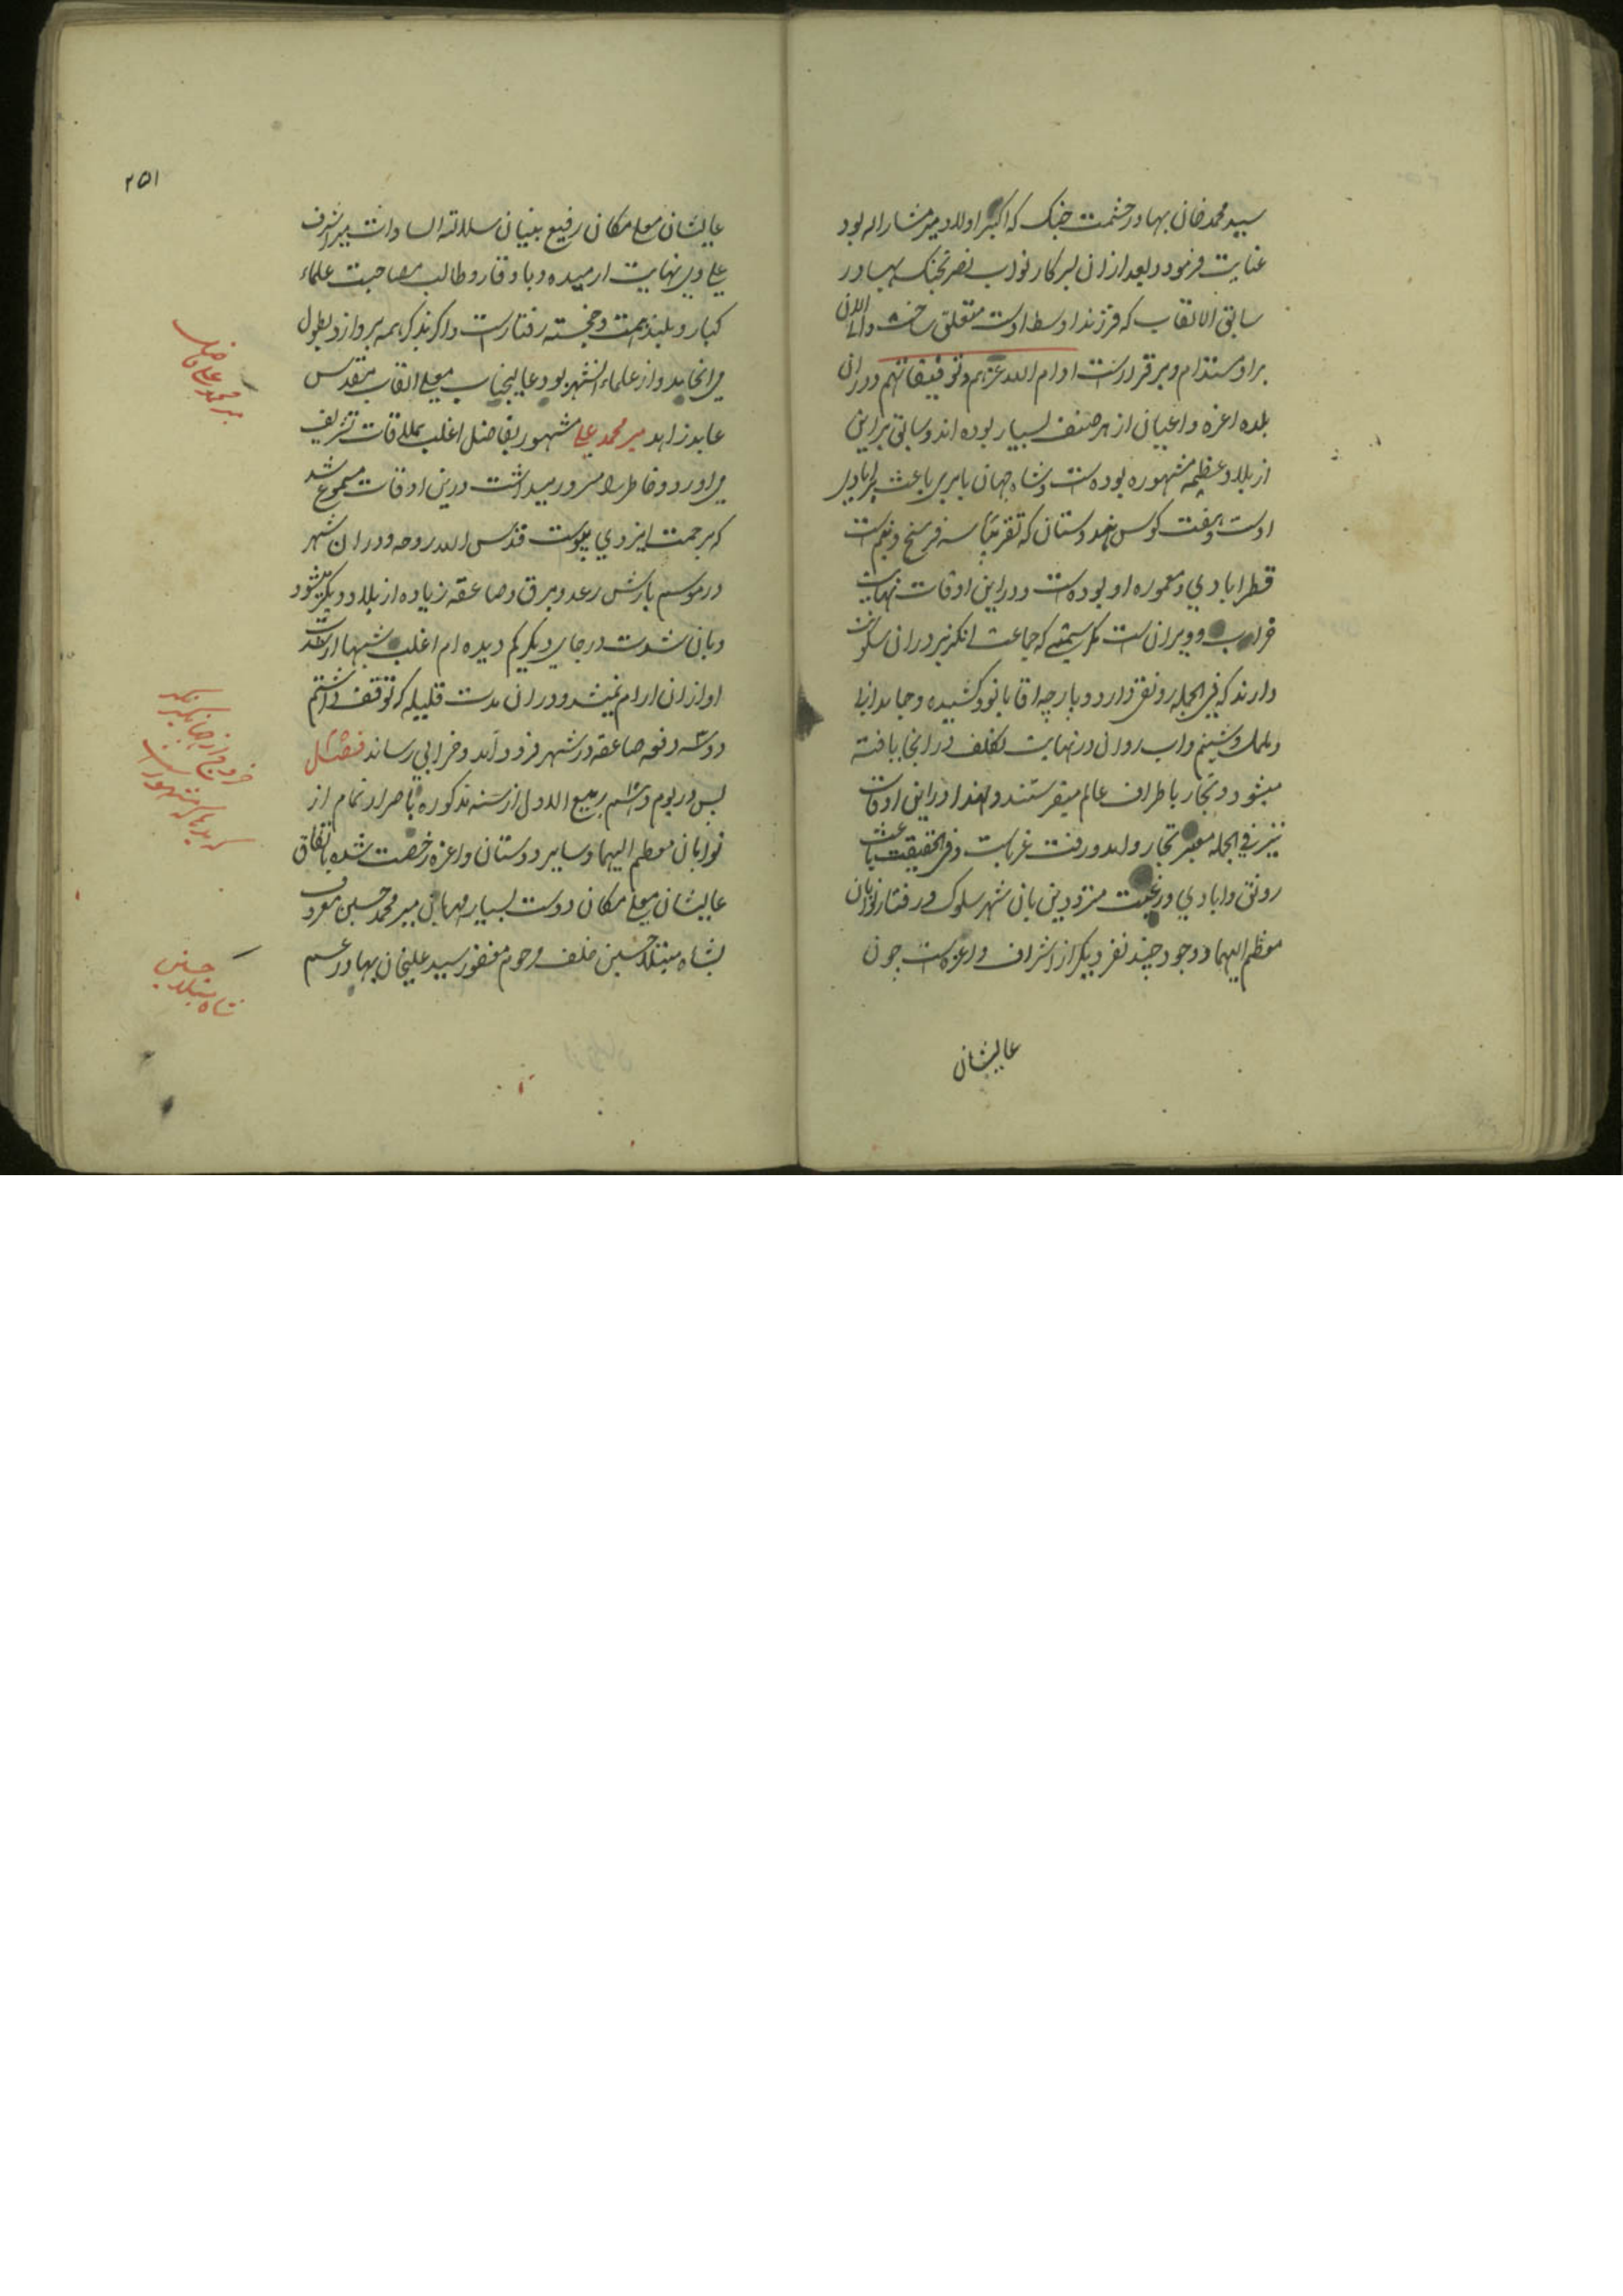 سید محمد خان بهادر حشمت جنک که اکبر اولاد میر مشارالیه بود
عنایت فرمود و بعد از ان بسرکار نواب نصرتجنک بهادر
سابق الالقاب که فرزند اوسط اوست متعلق ساخت و الی الان
براو مستدام و برقرار است ادام الله عزهم و توفیقاتهم و در ان
بلده اعزه و اعیان از هر صنف بسیار بوده اند و سابق بر این
از بلاد عظیمه مشهوره بوده است و شاه جهان بابری باعث
اوست و هفت کوس هندوستان که تقریبا سه فرسخ و نیم است
قطر ابادی و معموره او بوده است و در این اوقات نهایت
خراب و ویران است مکر سمتی که جماعت انکریز در ان سکونت
دارند که فی الجمله رونقی دارد و پارچه اقابانو و کشیده و جامدانی
و ململ و شبنم و اب روان در نهایت تکلف در انجا بافته
میشود و تجار باطراف عالم میفرستند و لهذا در این اوقات
نیز فی الجمله معبر تجار و امد و رفت غرباست و فی الحقیقت باعث
رونق و ابادی و رغبت مترددین بان شهر سلوک و رفتار نوابان
معظم الیهما و وجود چند نفر دیکر از اشراف و اعزه است چون
عالیشان
۲۵۱
عالیشان معلی مکان رفیع بنیان سلالته السادات میر اشرف
علی وی نهایت ارمیده و با وقار و طالب مصاحبت علماء
کبار و بلند همت و خجسته رفتار است و اکر بذکر همه پردازد بطول
می انجامد و از علماء انشهر بود عالیجناب معلی القاب مقدس
عابد زاهد میر محمد علی مشهور بفاضل اغلب بملاقات تشریف
می اورد و خاطر را مسرور میداشت در این اوقات مسموع شد
که برحمت ایزدی پیوست قدس الله روحه و در ان شهر
در موسم بارش رعد و برق و صاعقه زیاده از بلاد دیکر میشود
و بان شدت در جای دیکر کم دیده ام اغلب شبها از شدت
اواز ان ارام نمیشد و در ان مدت قلیله که توقف داشتم
دو سه دفعه صاعقه در شهر فرود آمد و خرابی رساند فصل
پس در یوم هشتم ربیع الاول از سنه مذکوره باصرار تمام از
نوابان معظم الیهما و سایر دوستان و اعزه رخصت شده باتفاق
عالیشان معلی مکان دوست بسیار مهربان میر محمد حسین معروف
بشاه مبتلا حسین خلف مرحوم مغفور سید علیخان بهادر عم
میر محمد علی فاضل
خروج از جهانکیر نکر
که بدهاکه مشهور است
شاه مبتلا حسین